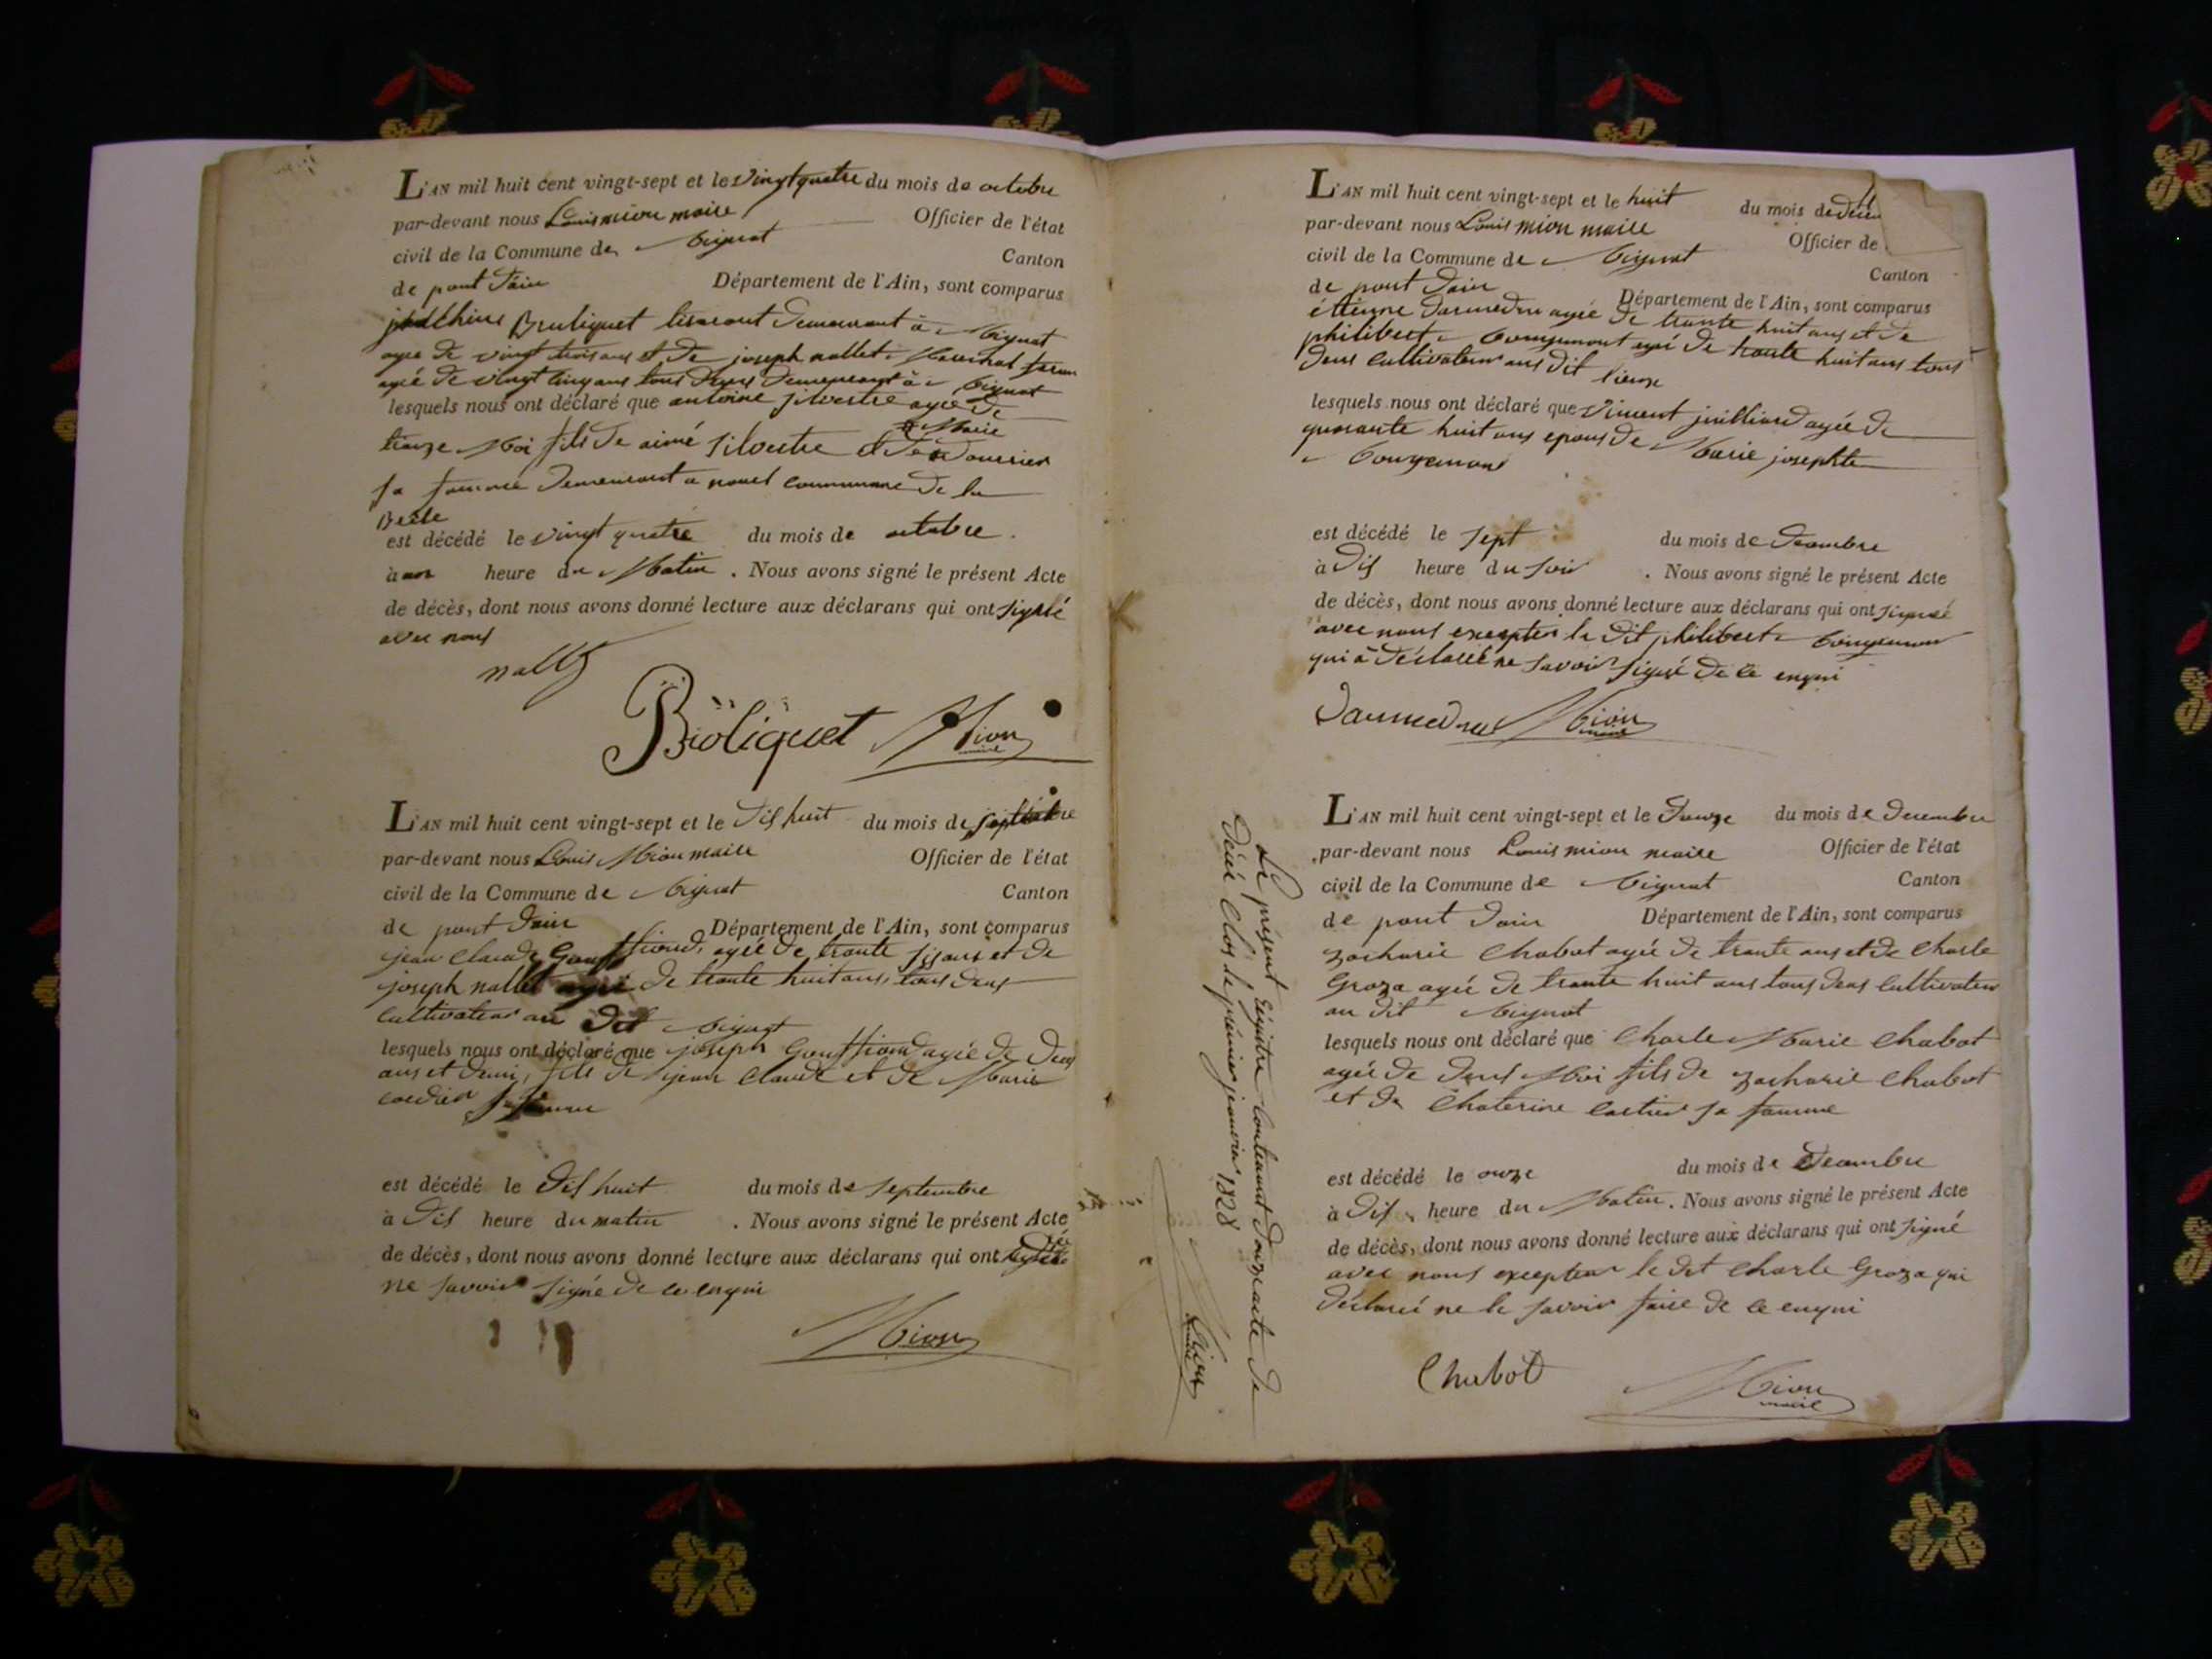 L'AN mil huit cent vingt-sept et le vingt quatre du mois de octobre
par-devant nous Louis mion maire Officier de l'état
civil de la Commune de Mignat Canton
de pont Dain Département de l'Ain, sont comparus
Broliquet demeurant à Mignat
agé de vingt trois ans et de joseph nallet Marechal
agé de vingt cinq ans tous deux demeurant à Mignat
lesquels nous ont déclaré que antoine silvestre agée de
treize Moi fils de aimé silvestre et de Marie
sa famme demeurant a commune de la
est décédé le vingt quatre du mois de octobre
à heure du Matin. Nous avons signé le présent Acte
de décès, dont nous avons donné lecture aux déclarans qui ont signé
avec nous
nallet
Broliquet Mion
maire
L'AN mil huit cent vingt-sept et le dis huit du mois de septembre
par-devant nous Louis Mion maire Officier de l'état
civil de la Commune de Mignat Canton
de pont Dain Département de l'Ain, sont comparus
jean Claude agée de trante sis ans et de
joseph nallet agée de trante huit ans, tous deus
cultivateur au dit Mignat
lesquels nous ont déclaré que joseph agée de deus
ans et demi, fils de jean Claude et de Marie
cordier sa famme
est décédé le dis huit du mois de septembre
à dis heure du matin. Nous avons signé le présent Acte
de décès, dont nous avons donné lecture aux déclarans qui ont
ne savoir signé de ce enqui
Mion
L'AN mil huit cent vingt-sept et le huit du mois de
par-devant nous Louis mion maire Officier de
civil de la Commune de Mignat Canton
de pont Dain Département de l'Ain, sont comparus
étienne agée de trante huit ans et de
philibert Mongemont agé de trante huit ans tous
deus cultivateur au dit lieux
lesquels nous ont déclaré que vincent juilliard agée de
quarante huit ans epous de Marie josephte
Mongemont
est décédé le sept du mois de decembre
à dis heure du soir. Nous avons signé le présent Acte
de décès, dont nous avons donné lecture aux déclarans qui ont signé
avec nous excepter le dit philibert Mongemont
qui à déclaré ne savoir signé de ce enqui
Mion
maire
L'AN mil huit cent vingt-sept et le Douze du mois de Decembre
par-devant nous Louis mion maire Officier de l'état
civil de la Commune de Mignat Canton
de pont Dain Département de l'Ain, sont comparus
zacharie Chabot agée de trante ans et de Charle
Groza agée de trante huit ans tous deus Cultivateur
au dit Mignat
lesquels nous ont déclaré que Charle Marie Chabot
agée de deus Moi fils de zacharie Chabot
et de Chaterine cartier sa famme
est décédé le onze du mois de Decembre
à dis heure du Matin. Nous avons signé le présent Acte
de décès, dont nous avons donné lecture aux déclarans qui ont signé
avec nous excepter le dit Charle Groza qui
déclaré ne le savoir faire de ce enqui
Chabot Mion
maire
Le présent Régistre Contenant Douze acte de
Décé Clos le premier janvier 1828
Mion
maire